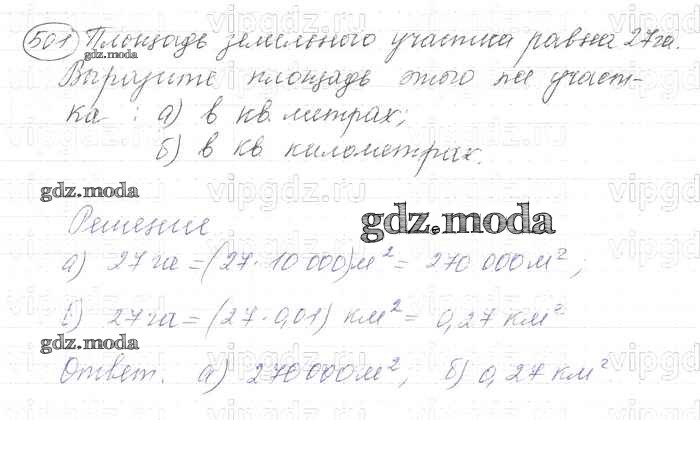 501 Площадь земельного участка равна 27га.
gdz.moda
Выразите площадь этого же участ-
ка : а) в кв. метрах;
б) в кв. километрах.
gdz.moda
gdz.moda
Решение
а) 27га = (27·10000)м² = 270 000м²;
б) 27га = (27·0,01) км² = 0,27 км².
gdz.moda
Ответ. а) 270000м²; б) 0,27 км².
vipgdz.ru